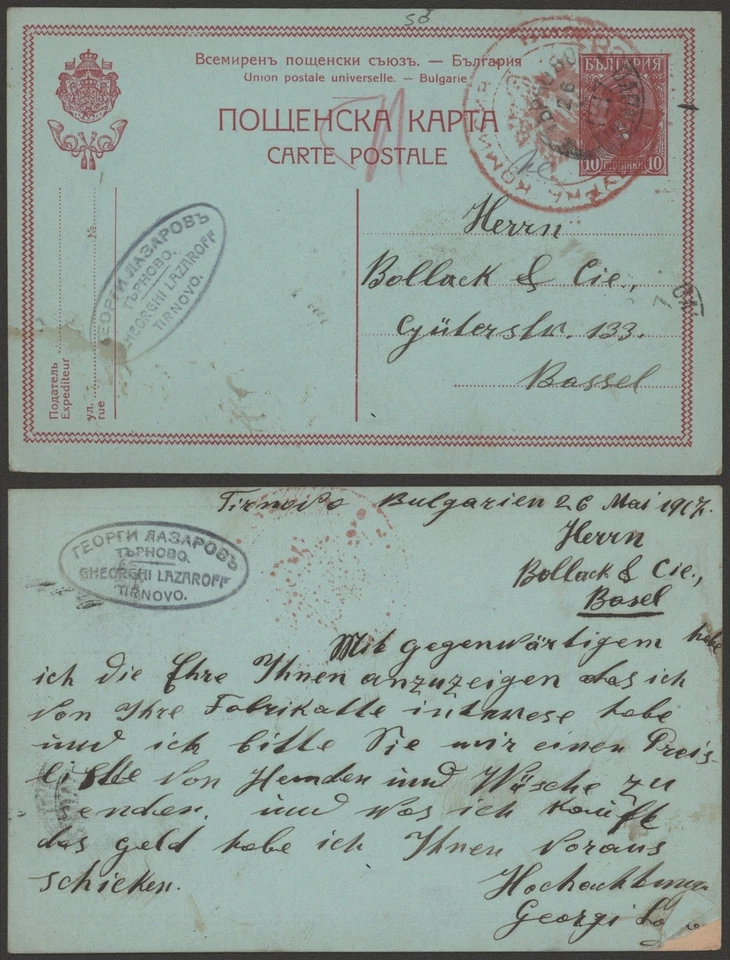 50
Всемиренъ пощенски съюзъ. — България
Union postale universelle. — Bulgarie
ПОЩЕНСКА КАРТА
CARTE POSTALE
БЪЛГАРИЯ
10 СТОТИНКИ 10
26
ГЕОРГИ ЛАЗАРОВЪ
ТЪРНОВО.
GHEORGHI LAZAROFF
TIRNOVO.
Податель
Expéditeur
ул. №
rue
Herrn
Bollack & Cie.,
Güterstr. 133.
Bassel
Tirnovo Bulgarien 26 Mai 1917.
ГЕОРГИ ЛАЗАРОВЪ
ТЪРНОВО.
GHEORGHI LAZAROFF
TIRNOVO.
Herrn
Bollack & Cie.,
Basel
Mit gegenwärtigem habe
ich die Ehre Ihnen anzuzeigen das ich
von Ihre Fabrikatte interese habe
und ich bitte Sie mir einen Preis-
liste von Hemden und Wäsche zu
enden. und was ich kauffe
das geld habe ich Ihnen voraus
schicken.
Hochachtung
Georgi